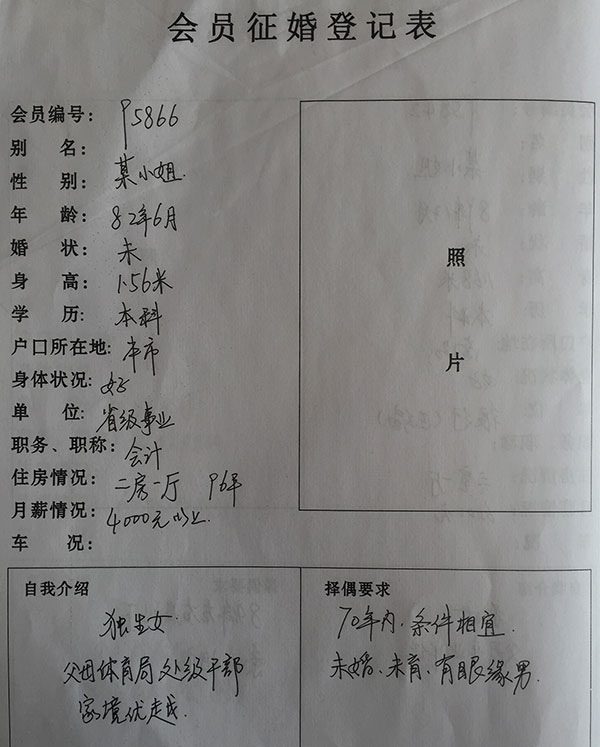 会员征婚登记表
会员编号: P5866
别 名:
性 别: 某小姐.
年 龄: 82年6月
婚 状: 未
身 高: 1.56米
学 历: 本科
户口所在地: 本市
身体状况: 好
单 位: 省级事业
职务、职称: 会计
住房情况: 二房一厅 96年
月薪情况: 4000元以上.
车 况:
照
片
自我介绍
独生女.
父母体育局处级干部
家境优越.
择偶要求
70年内.条件相宜.
未婚、未育、有眼缘男.